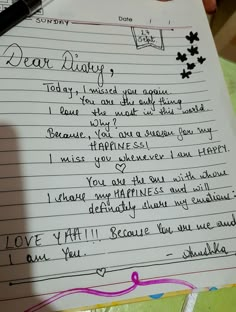 SUNDAY
Date / /
14
Sept
Dear Diary,
Today, I missed you again.
You are the only thing
I love the most in this world
Why?
Because, You are a reason for my
HAPPINESS!
I miss you whenever I am HAPPY.
You are the one with whom
I share my HAPPINESS and will
definately share my emotions.
LOVE YAH!!! Because You are me and
I am You.
- Anushka